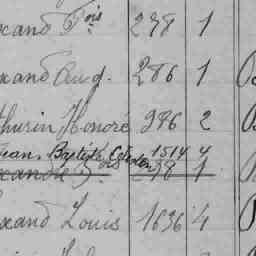 xand Fois 278 1
xand Aug. 286 1
thurin Honoré 386 2
Jean, Baptiste 1514 4
xandre F 278 1
xand Louis 1636 4